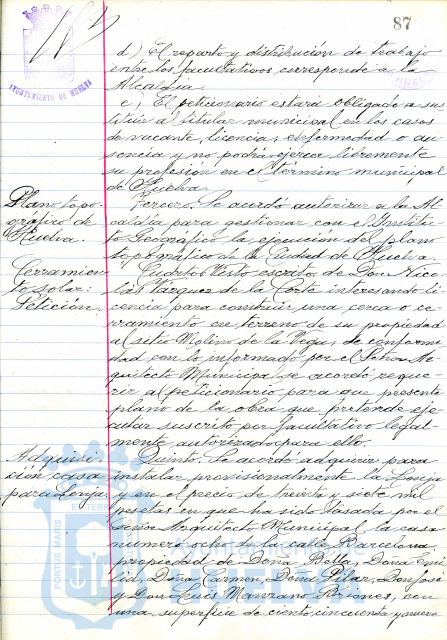 87
AYUNTAMIENTO DE HUELVA
d) El reparto y distribución de trabajo
entre los facultativos corresponde a la
Alcaldía.
e) El peticionario estará obligado a sus
tituir al titular municipal en los casos
de vacante, licencia, enfermedad o au
sencia y no podrá ejercer libremente
su profesión en el término municipal
de Huelva.
Plano topo
gráfico de
Huelva.
Tercero. Se acordó autorizar a la Al
caldía para gestionar con el Institu
to Geográfico la ejecución del plano
topográfico de la Ciudad de Huelva.
Cerramien
to solar:
Petición.
Cuarto. Visto escrito de Don Nico
lás Vázquez de la Corte interesando li
cencia para construir una cerca o ce
rramiento en terreno de su propiedad
al sitio Molino de la Vega, de conformi
dad con lo informado por el Señor Ar
quitecto Municipal se acordó reque
rir al peticionario para que presente
plano de la obra que pretende eje
cutar suscrito por facultativo legal
mente autorizado para ello.
Adquisi
ción casa
para Lonja
Quinto. Se acordó adquirir para
instalar provisionalmente la Lonja
y en el precio de treinta y siete mil
pesetas en que ha sido tasada por el
Señor Arquitecto Municipal la casa
número ocho de la calle Barcelona
propiedad de Doña Bella, Doña Emi
lia, Doña Carmen, Doña Pilar, Don José
y Don Luis Manzano, con
una superficie de ciento cincuenta y nueve
PORTUS MARIS
TERR
Ayuntamiento de
HUELVA